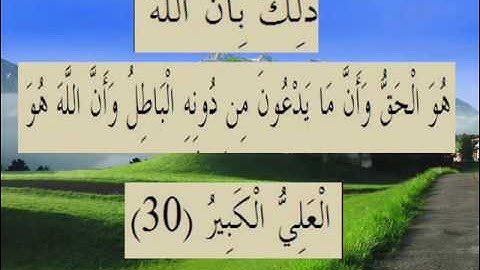 ذَلِكَ بِأَنَّ اللَّهَ
هُوَ الْحَقُّ وَأَنَّ مَا يَدْعُونَ مِن دُونِهِ الْبَاطِلُ وَأَنَّ اللَّهَ هُوَ
الْعَلِيُّ الْكَبِيرُ (30)